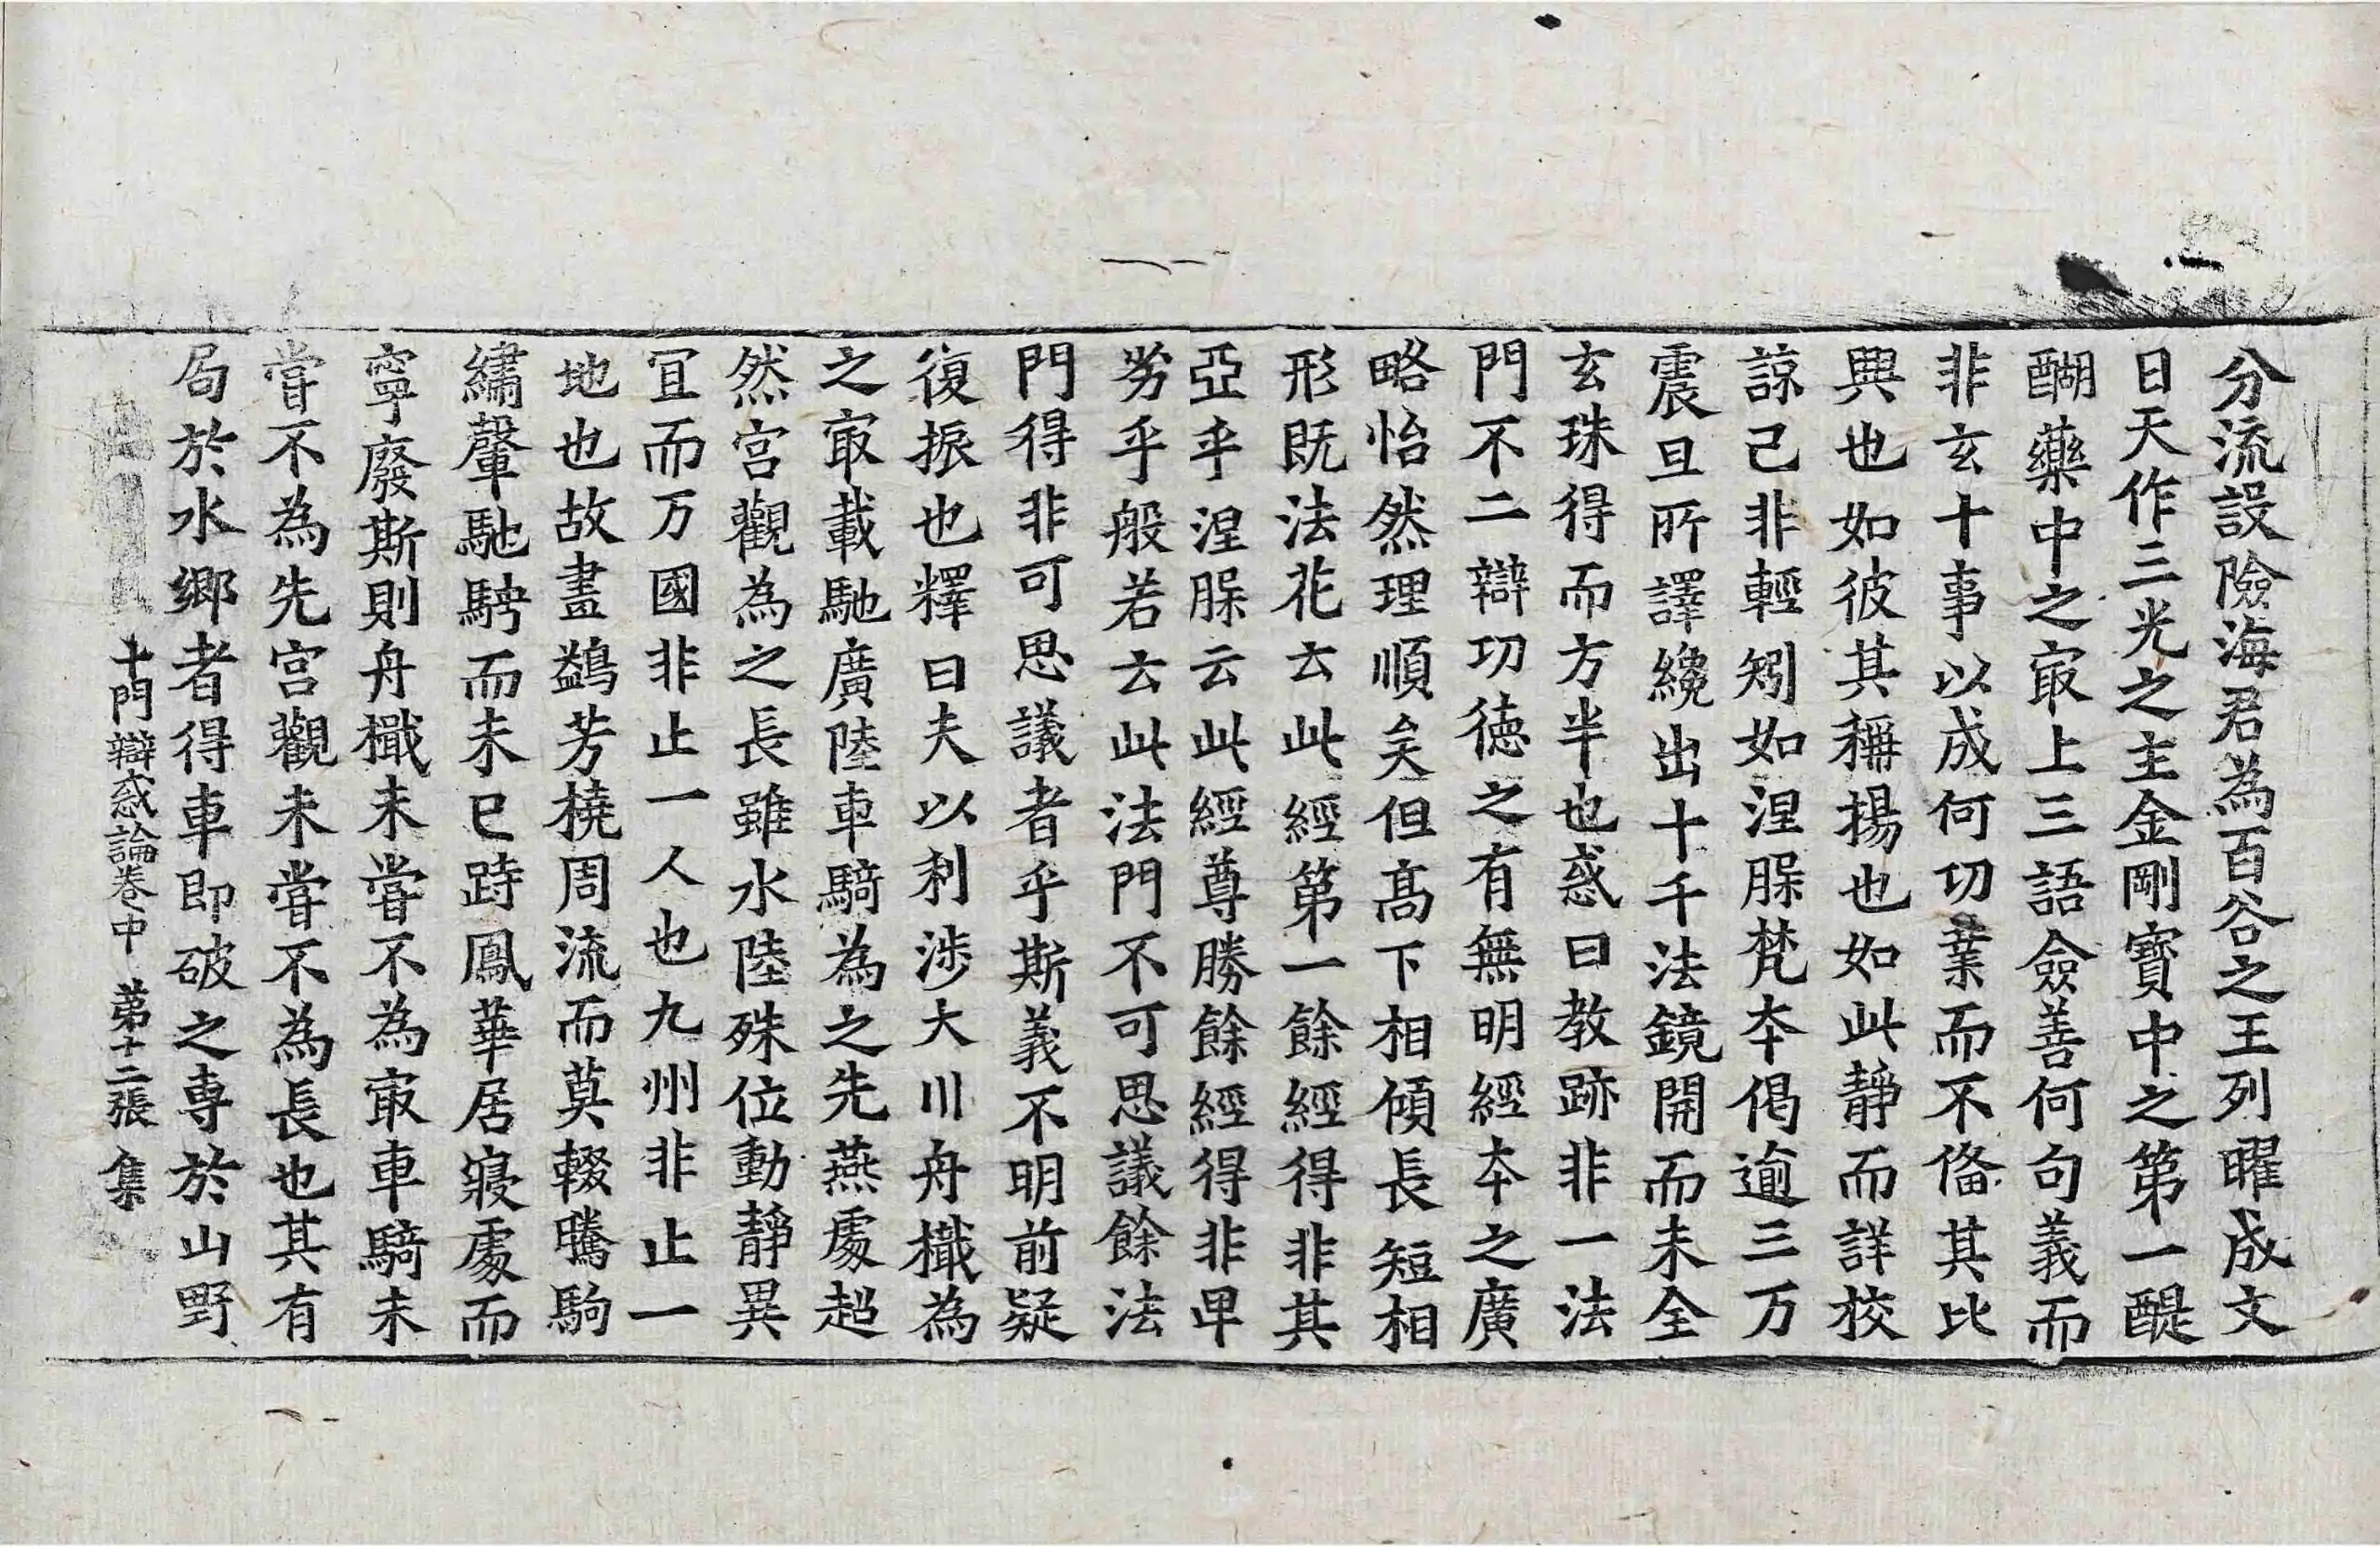 分流設險海君為百谷之王列曜成文
日天作三光之主金剛寶中之第一醍
醐藥中之㝡上三語僉善何句義而
非玄十事以成何功業而不俻其比
興也如彼其稱揚也如此靜而詳挍
諒己非輕矧如涅脲梵夲偈逾三万
震旦所譯纔出十千法鏡開而未全
玄珠得而方半也惑曰教跡非一法
門不二辯功德之有無明經夲之廣
略怡然理順矣但髙下相傾長短相
形既法花云此經第一餘經得非其
亞乎涅脲云此經尊勝餘經得非卑
劣乎般若云此法門不可思議餘法
門得非可思議者乎斯義不明前疑
復振也釋曰夫以利涉大川舟檝為
之㝡載馳廣陸車騎為之先燕處超
然宮觀為之長雖水陸殊位動靜異
冝而万國非止一人也九州非止一
地也故畫鷁芳橈周流而莫輟騰駒
繡轂馳騁而未已跱鳳華居寢處而
寧廢斯則舟檝未嘗不為㝡車騎未
嘗不為先宮觀未嘗不為長也其有
局於水鄉者得車即破之專於山野
十門辯惑論卷中 第十二張 集